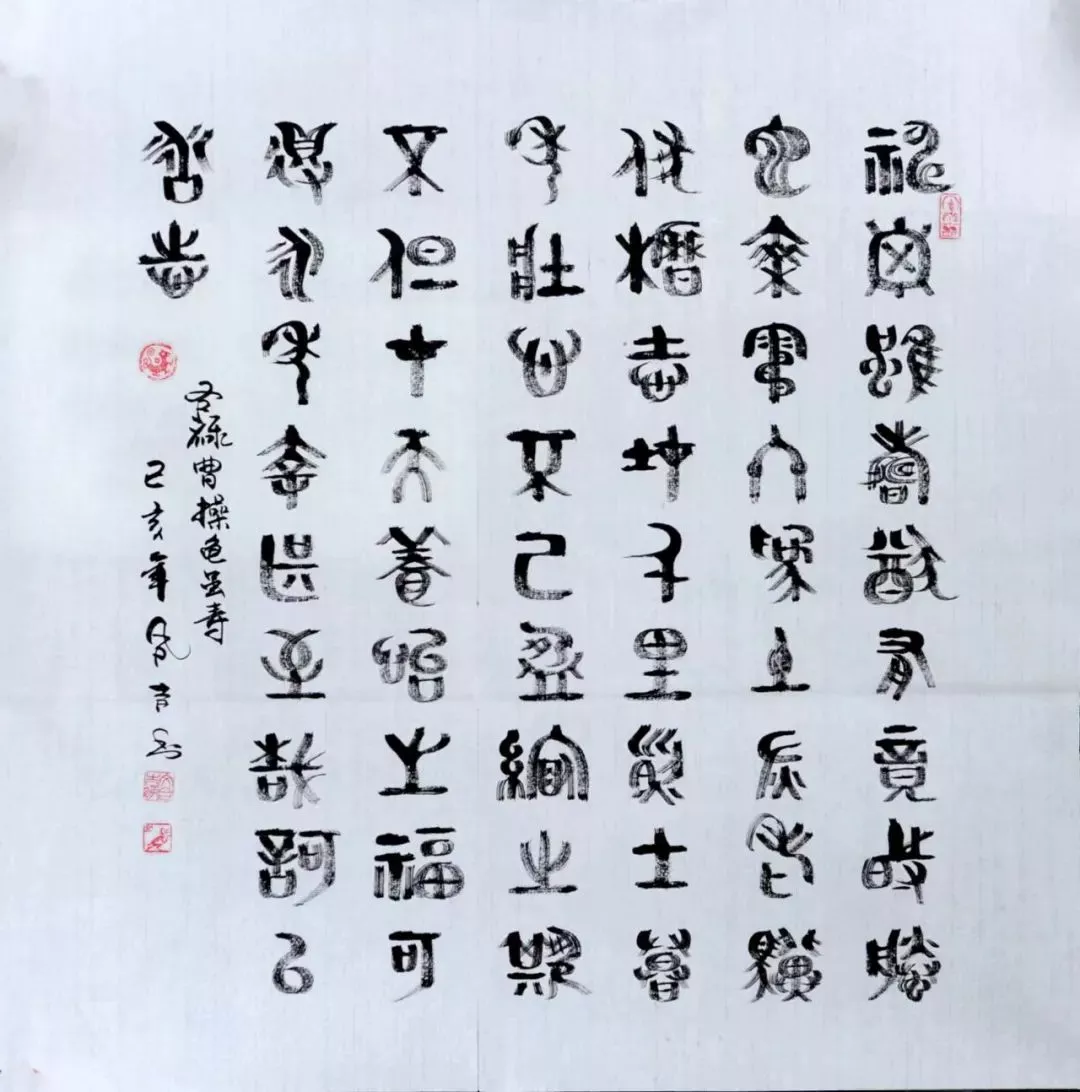 神龜雖壽猶有竟時騰
蛇乘霧終為土灰老驥
伏櫪志在千里烈士暮
年壯心不已盈縮之期
不但在天養怡之福可
得永年幸甚至哉歌以
詠志
右録曹操龟虽寿
己亥年